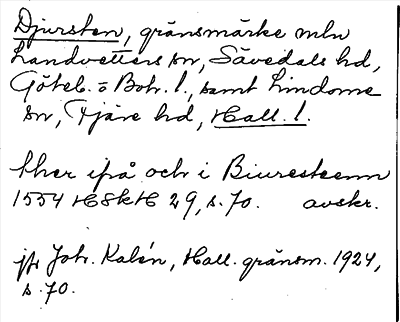 Djursten, gränsmärke mln
Landvetters sn, Sävedals hd,
Göteb. o Boh. l., samt Lindome
sn, Fjäre hd, Hall. l.
ther ifrå och i Biuresteenn
1554 HSkH 29, s. 70. avskr.
jfr Joh. Kalén, Hall. gränsm. 1924,
s. 70.